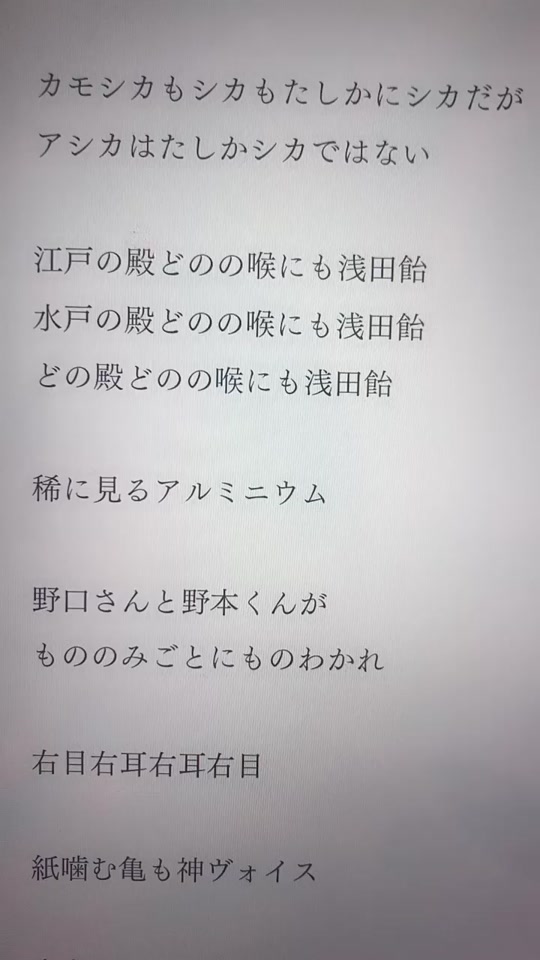 カモシカもシカもたしかにシカだが
アシカはたしかシカではない
江戸の殿どのの喉にも浅田飴
水戸の殿どのの喉にも浅田飴
どの殿どのの喉にも浅田飴
稀に見るアルミニウム
野口さんと野本くんが
もののみごとにものわかれ
右目右耳右耳右目
紙噛む亀も神ヴォイス